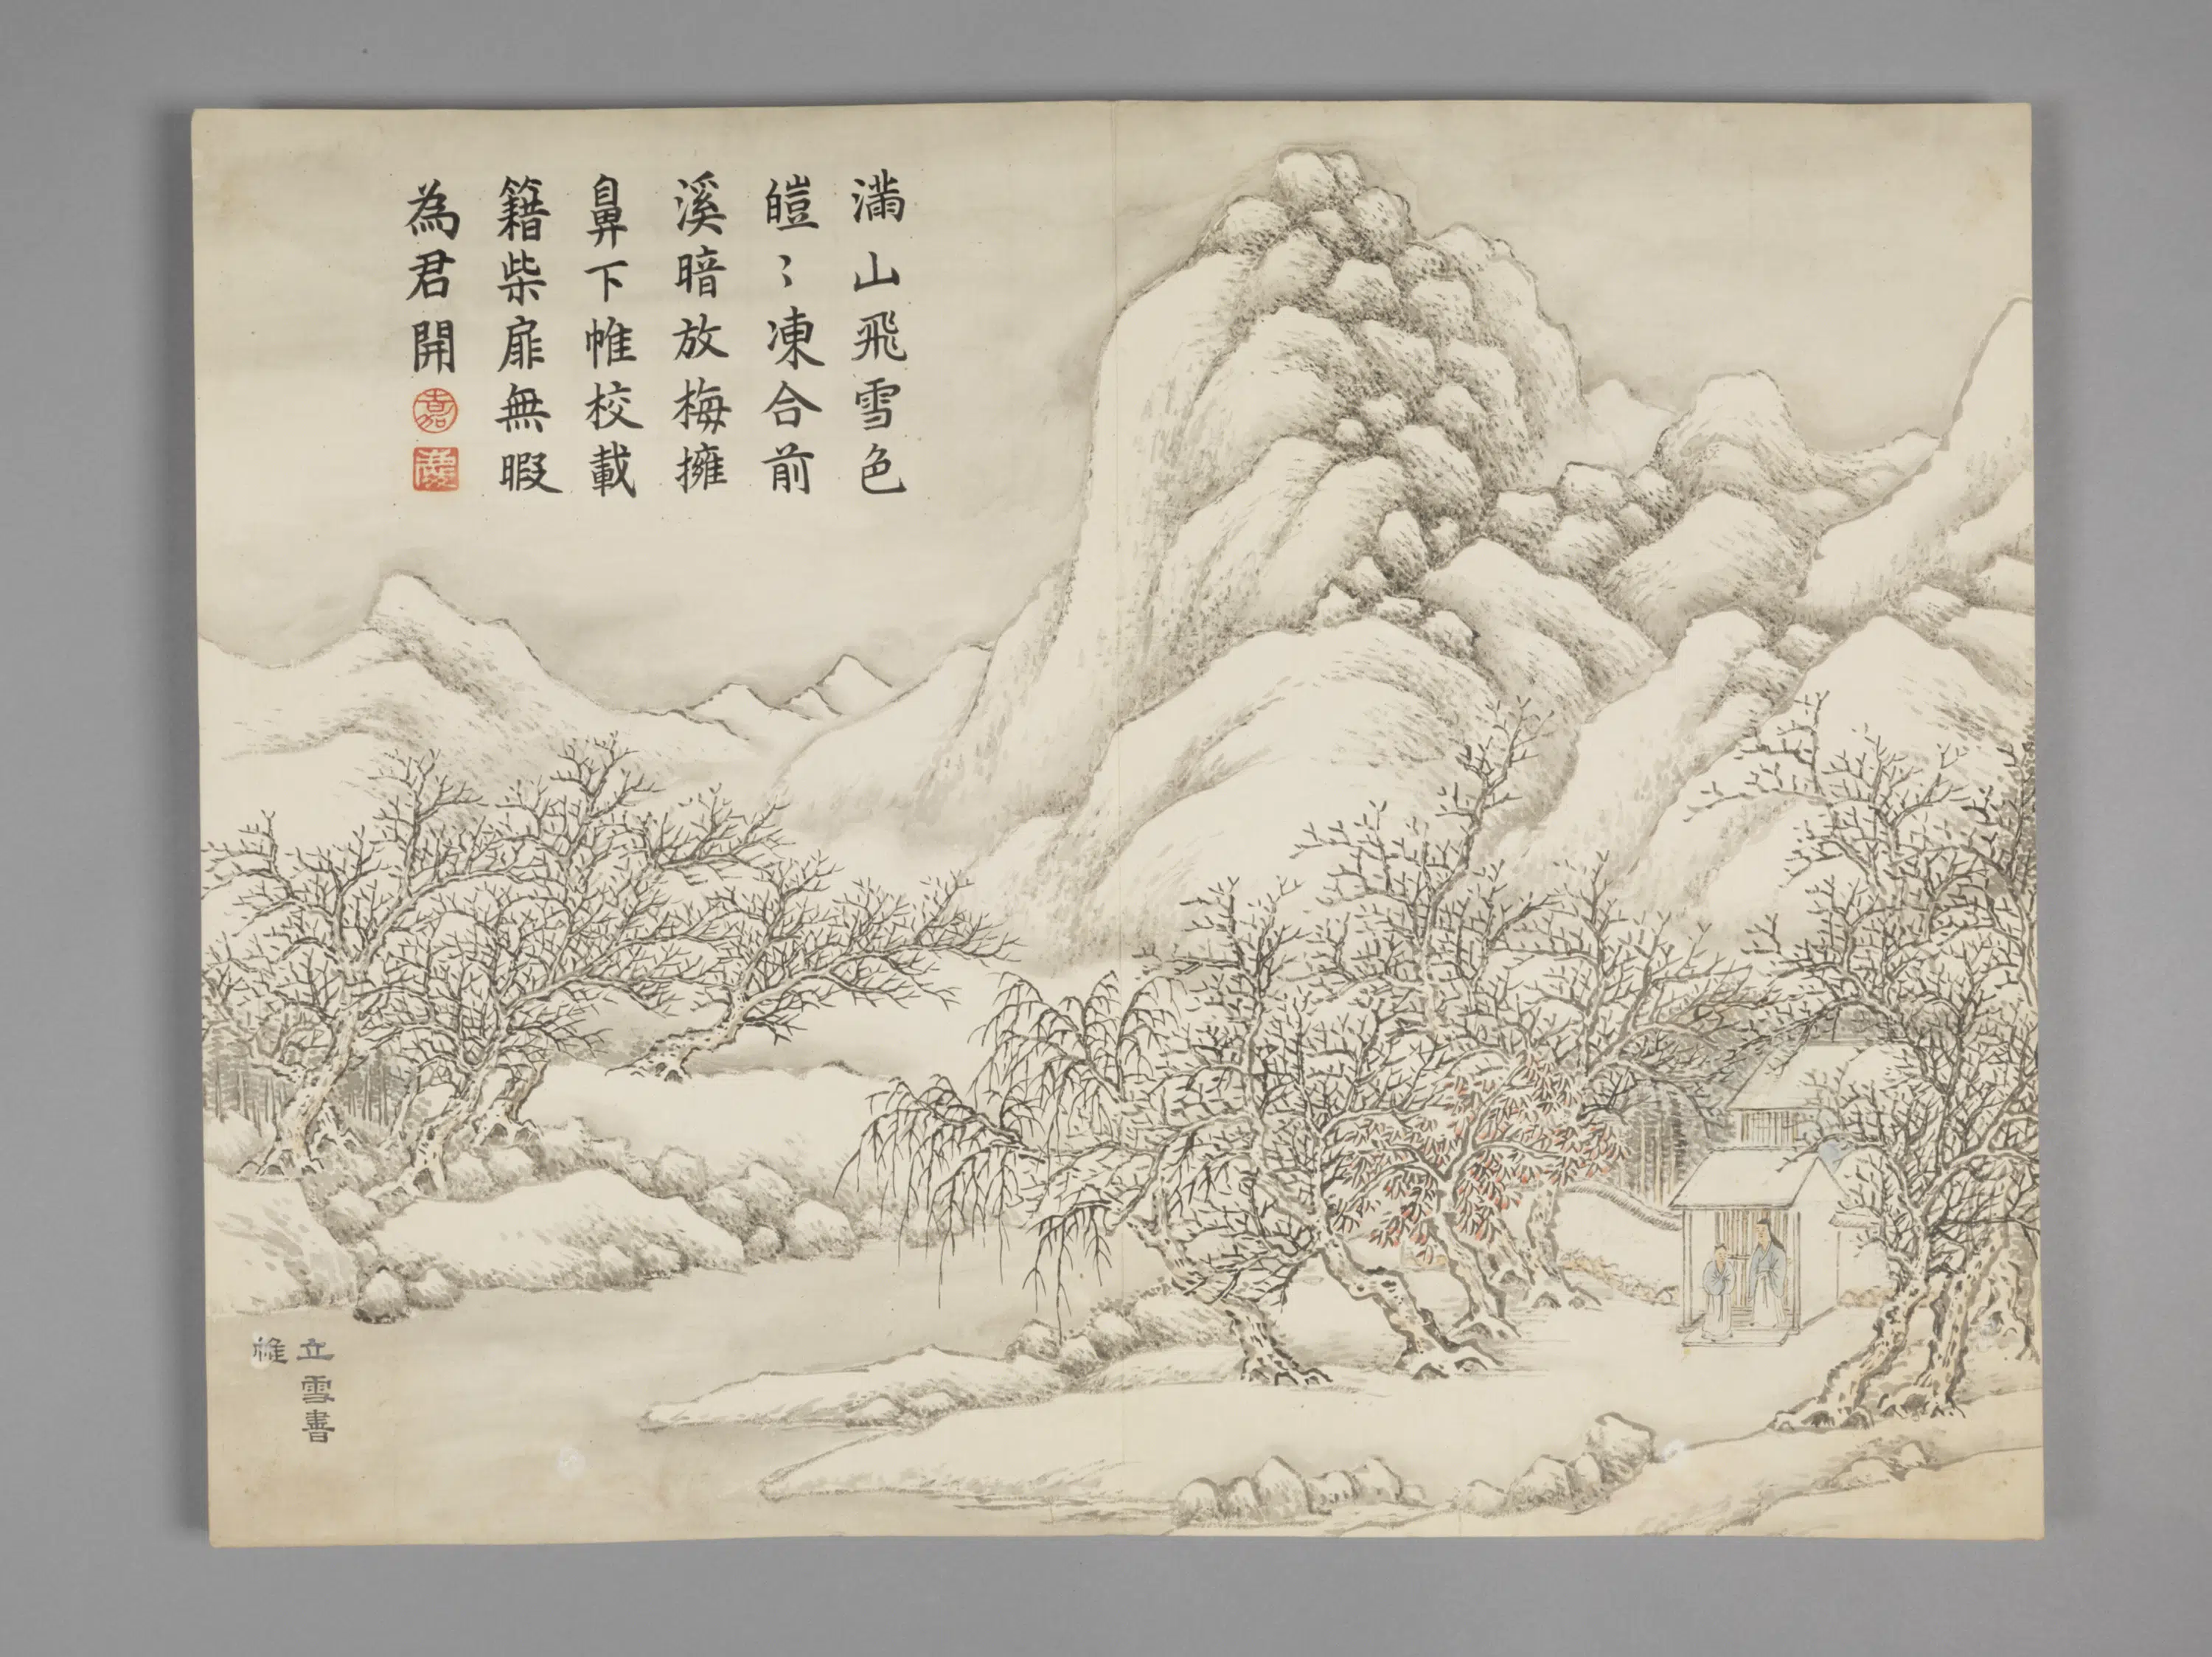 滿山飛雪色
皚〻凍合前
溪暗放梅擁
鼻下帷校載
籍柴扉無暇
為君開
嘉
慶
立雪書
帷